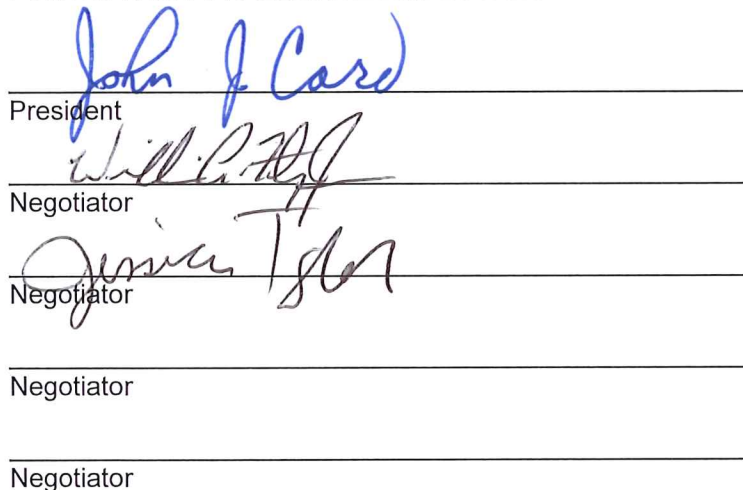 John J Card
President
Negotiator
Jessica Tyler
Negotiator
Negotiator
Negotiator